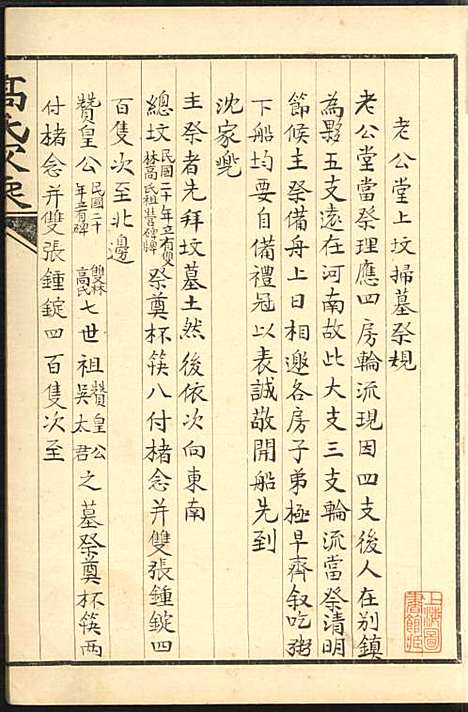 老公堂上坟掃墓祭規
老公堂當祭理應四房輪流現因四支後人在别鎮
為夥五支遠在河南故此大支三支輪流當祭清明
節候主祭備舟上日相邀各房子弟極早齊叙吃粥
下船均要自備禮冠以表誠敬開船先到
沈家兜
主祭者先拜坟墓土然後依次向東南
總坟民國二十年立有雙林高氏祖塋碑牌祭奠杯筷八付楮念并雙張錘錠四
百隻次至北邊
贊皇公民國二十年立有碑雙林高氏七世祖贊皇公吳太君之墓祭奠杯筷两
付楮念并雙張錘錠四百隻次至
高氏家乘
上海圖書館藏